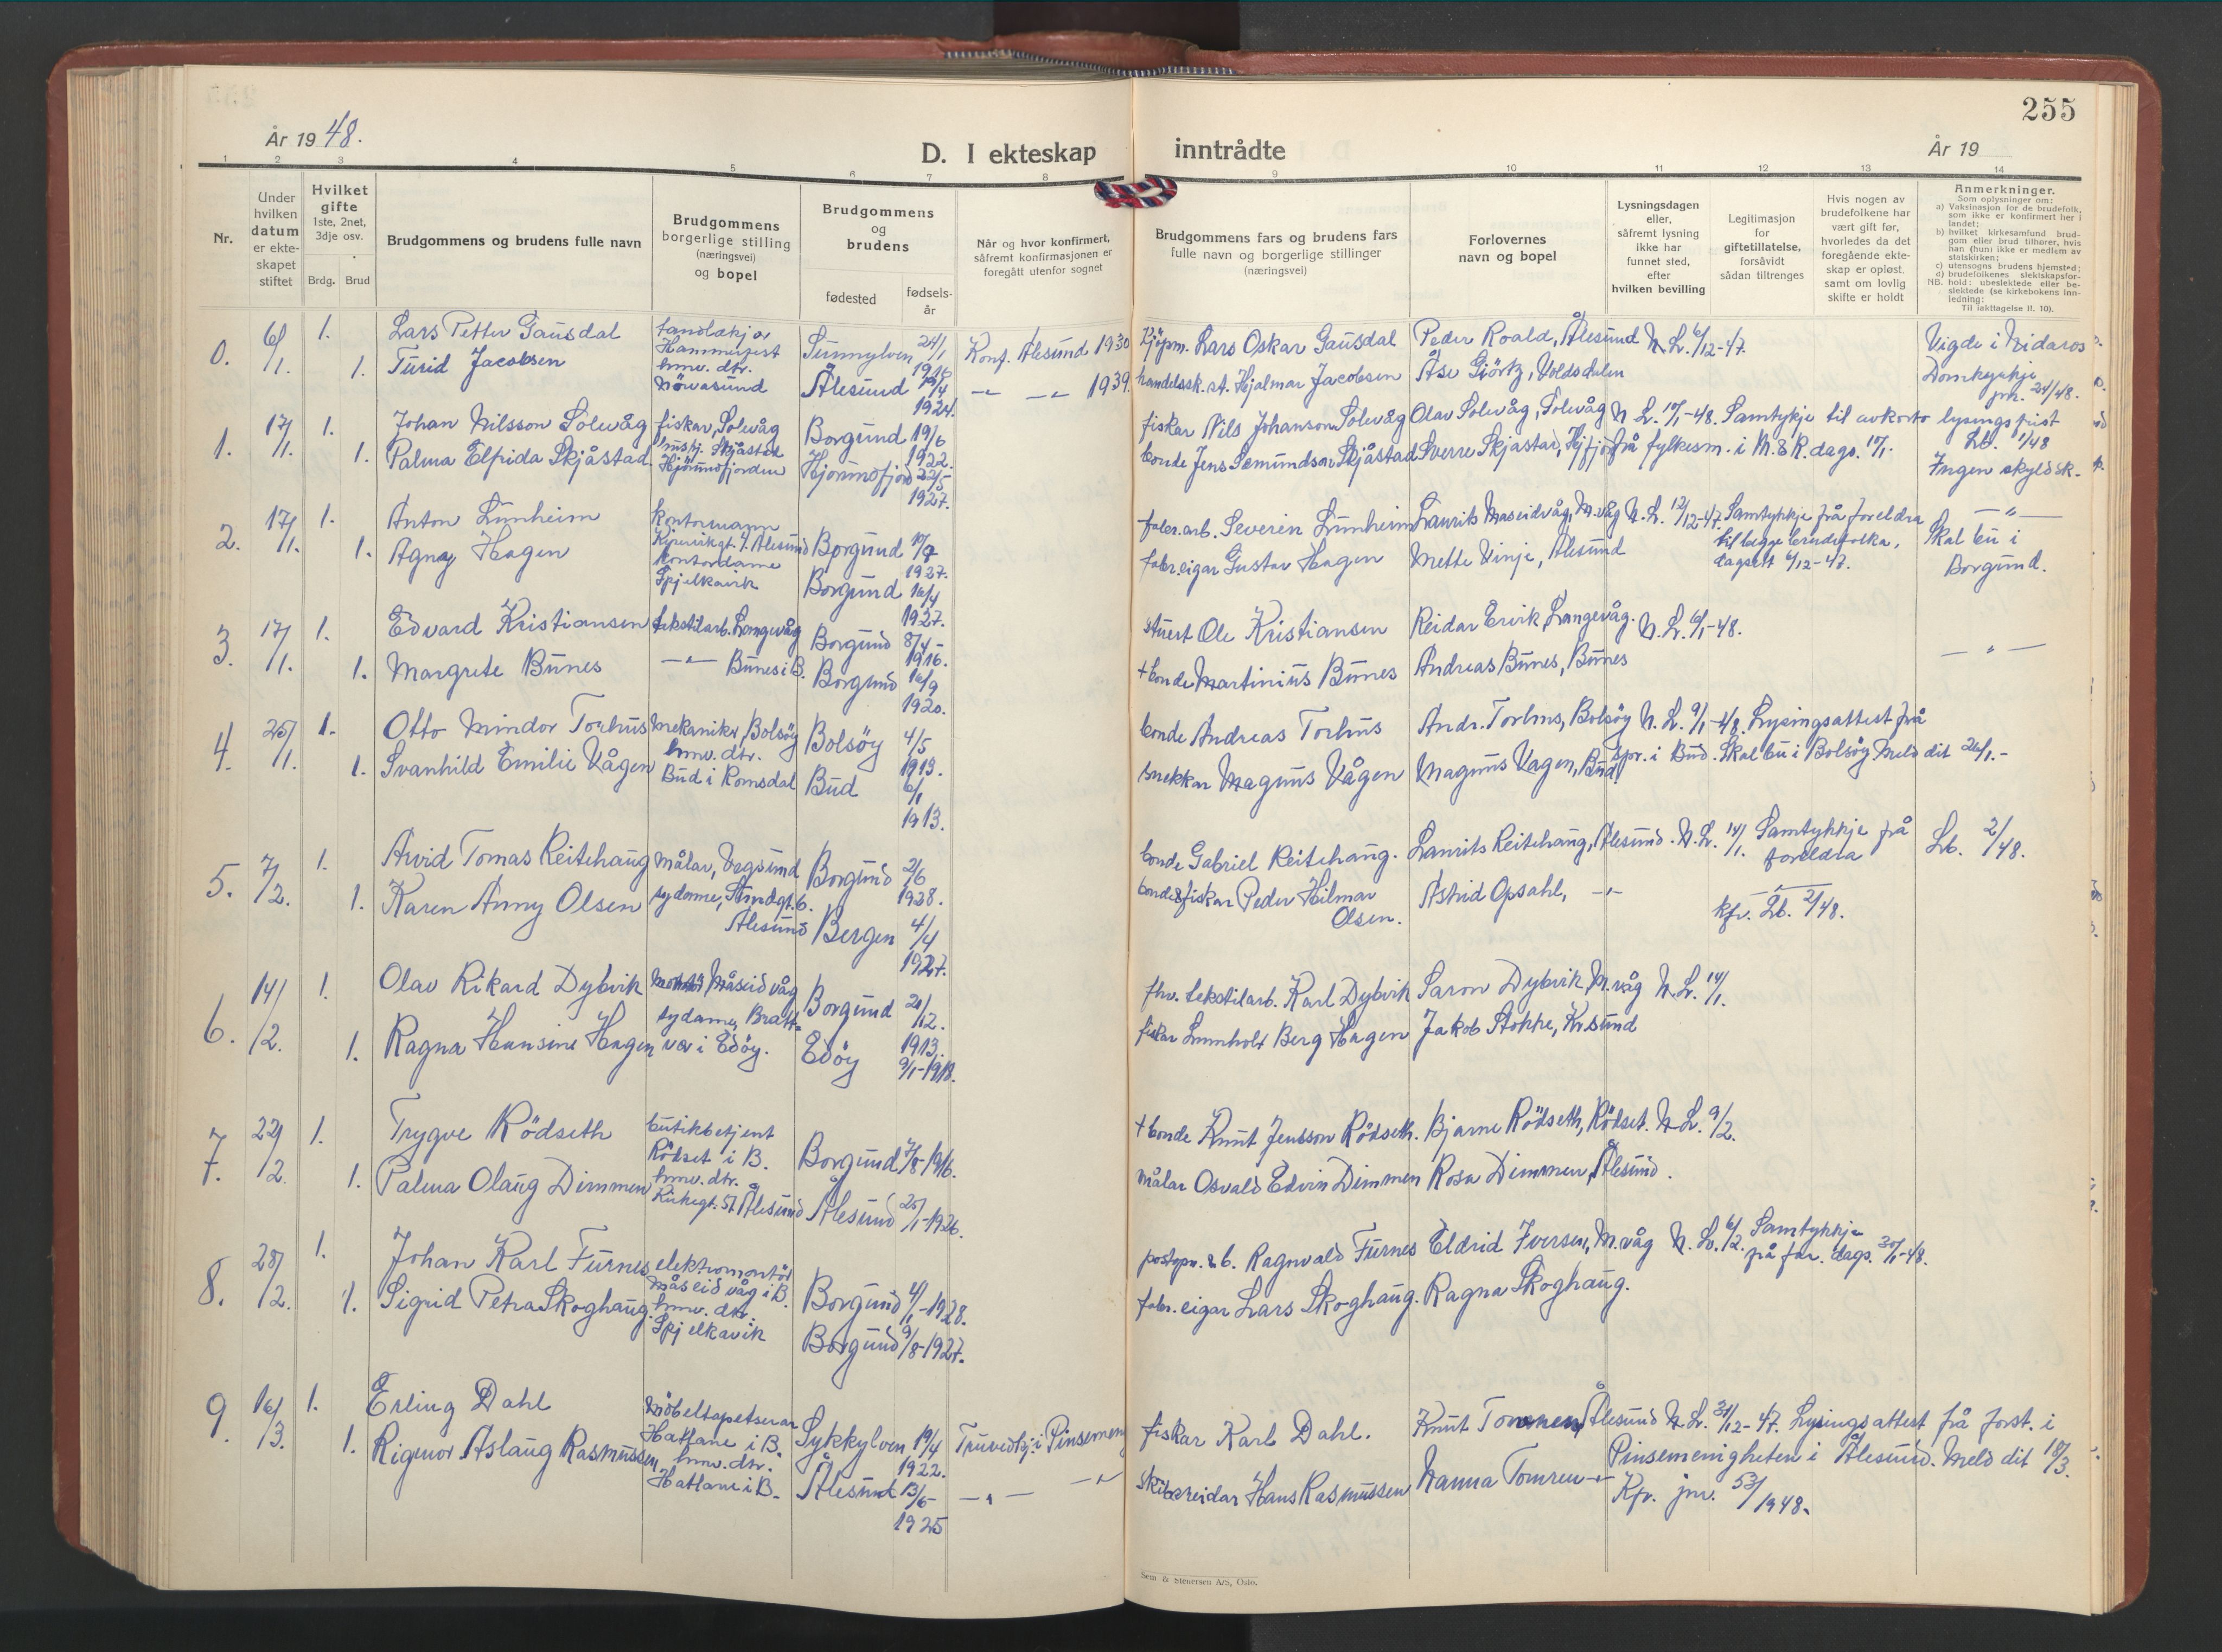 255
År 1948.
D. I ekteskap inntrådte
År 19
1 2 3 4 5 6 7 8 9 10 11 12 13 14
Nr.
Under
hvilken
datum
er ekte-
skapet
stiftet
Hvilket
gifte
1ste, 2net,
3dje osv.
Brdg. Brud
Brudgommens og brudens fulle navn
Brudgommens
borgerlige stilling
(næringsvei)
og bopel
Brudgommens
og
brudens
fødested
fødsels-
år
Når og hvor konfirmert,
såfremt konfirmasjonen er
foregått utenfor sognet
Brudgommens fars og brudens fars
fulle navn og borgerlige stillinger
(næringsvei)
Forlovernes
navn og bopel
Lysningsdagen
eller,
såfremt lysning
ikke har
funnet sted,
efter
hvilken bevilling
Legitimasjon
for
giftetillatelse,
forsåvidt
sådan tiltrenges
Hvis nogen av
brudefolkene har
vært gift før,
hvorledes da det
foregående ekte-
skap er opløst.
samt om lovlig
skifte er holdt
Anmerkninger.
Som oplysninger om:
a) Vaksinasjon for de brudefolk,
som ikke er konfirmert her i
landet;
b) hvilket kirkesamfund brud-
gom eller brud tilhører, hvis
han (hun) ikke er medlem av
statskirken;
c) utensogns brudens hjemsted;
d) brudefolkenes slektskapsfor-
NB. hold: ubeslektede eller be-
slektede (se kirkebokens inn-
ledning:
Til iakttagelse II. 10).
0. 6/1. 1. Lars Petter Gausdal
Hammerfest Sunnylven 24/1 1916 Konf. Ålesund 1930
Lars Oskar Gausdal Peder Roald, Ålesund N.L. 6/12-47. Vigde i Nidaros
1. Turid Jacobsen hmv. dtr. Nörvasund Ålesund 1924. 1939.
handelssk. st. Hjalmar Jacobsen Åse Giörtz, Voldsdalen Domkyrkje 24/1-48.
1. 17/1. 1. Johan Nilsson Solevåg fiskar, Solevåg Borgund 19/6 1922.
fiskar Nils Johanson Solevåg Olav Solevåg, Solevåg N.L. 10/1-48. Samtykje til avkorta lysingsfrist Lb. 1/48
1. Palma Elfrida Skjåstad. Skjåstad Hjörundfjorden Hjörundfjord 22/5 1927.
bonde Jens Semundson Skjåstad Sverre Skjåstad, Hj.fjord frå fylkesm. i M. & R. dags. Ingen skyldsk.
2. 17/1. 1. Anton Lunheim kontormann Ålesund Borgund 1927.
fabr. arb. Severin Lunheim Laurits Maseidvåg, M.våg N.L. 12/12-47. Samtykkje frå foreldra
1. Agnay Hagen kontordame Spjelkavik Borgund 16/4 1927.
fabr. eigar Gustav Hagen Mette Vinje, Ålesund til begge brudefolka, dagsett 6/12-47. Skal bu i Borgund.
3. 17/1. 1. Edvard Kristiansen tekstilarb. Langevåg Borgund 8/4- 1916.
stuert Ole Kristiansen Reidar Ervik, Langevåg. N.L. 6/1-48.
1. Margrete Bunes —"— Bunes i B. Borgund 16/9 1920.
+ bonde Martinius Bunes Andreas Bunes, Bunes —"—
4. 25/1. 1. Otto Mindor Torhus Mekaniker, Bolsöy Bolsöy 4/5 1913.
bonde Andreas Torhus Andr. Torhus, Bolsöy N.L. 9/1-48. Lysingsattest frå
1. Svanhild Emilie Vågen hmv. dtr. Bud i Romsdal Bud 6/1 1913.
snekkar Magnus Vågen Magnus Vagen, Bud spr. i Bud. Skal bu i Bolsöy Meld dit 26/1.-
5. 7/2. 1. Arvid Tomas Reitehaug Målar, Vegsund Borgund 2/6 1928.
bonde Gabriel Reitehaug. Laurits Reitehaug, Ålesund. N.L. 14/1. Samtykkje frå foreldra Lb. 2/48.
1. Karen Anny Olsen sydame, Strndgt. 6. Ålesund Bergen 4/4 1927.
bonde & fiskar Peder Hilmar Olsen. Astrid Opsahl, —"— kfr. Lb. 2/48.
6. 14/2. 1. Olav Rikard Dybvik Måseidvåg Borgund 21/12. 1913.
fhv. tekstilarb. Karl Dybvik Saron Dybvik, M.våg N.L. 14/1.
1. Ragna Hansine Hagen sydame, Bratt= vær i Edöy. Edöy 9/1-1918.
fiskar Lumholt Berg Hagen Jakob Stokke, Kr.sund
7. 22/2. 1. Trygve Rödseth butikbetjent Rödset i B. Borgund 7/8-1916.
+ bonde Knut Jensson Rödseth. Bjarne Rödseth, Rödset. N.L. 9/2.
1. Palma Olaug Dimmen hmv. dtr. Kirkegt. 51 Ålesund Ålesund 25/1-1926.
målar Osvald Edvin Dimmen Rosa Dimmen, Ålesund.
8. 28/2. 1. Johan Karl Furnes elektromontör Måseidvåg i B. Borgund 4/1-1928.
postopn. & b. Ragnvald Furnes Eldrid Iversen, M.våg N.L. 6/2. Samtykkje frå for. dags. 30/1-48.
1. Sigrid Petra Skoghaug. hmv. dtr. Spjelkavik Borgund 9/8-1927.
fabr. eigar Lars Skoghaug. Ragna Skoghaug.
9. 16/3. 1. Erling Dahl Möbeltapetserar Hatlane i B. Sykkylven 19/4 1922. i Pinsemen
fiskar Karl Dahl. Knut Tomren, Ålesund N.L. 31/12-47. Lysingsattest frå forst. i
1. Rigmor Aslaug Rasmussen hmv. dtr. Hatlane i B. Ålesund 13/5- 1925 —"— —"
skibsreidar Hans Rasmussen Nanna Tomren —"— Pinsemenigheten i Ålesund. Meld dit 18/3.
Kfr. jnr. 53/1948.
Sem & Stenersen A/S, Oslo.